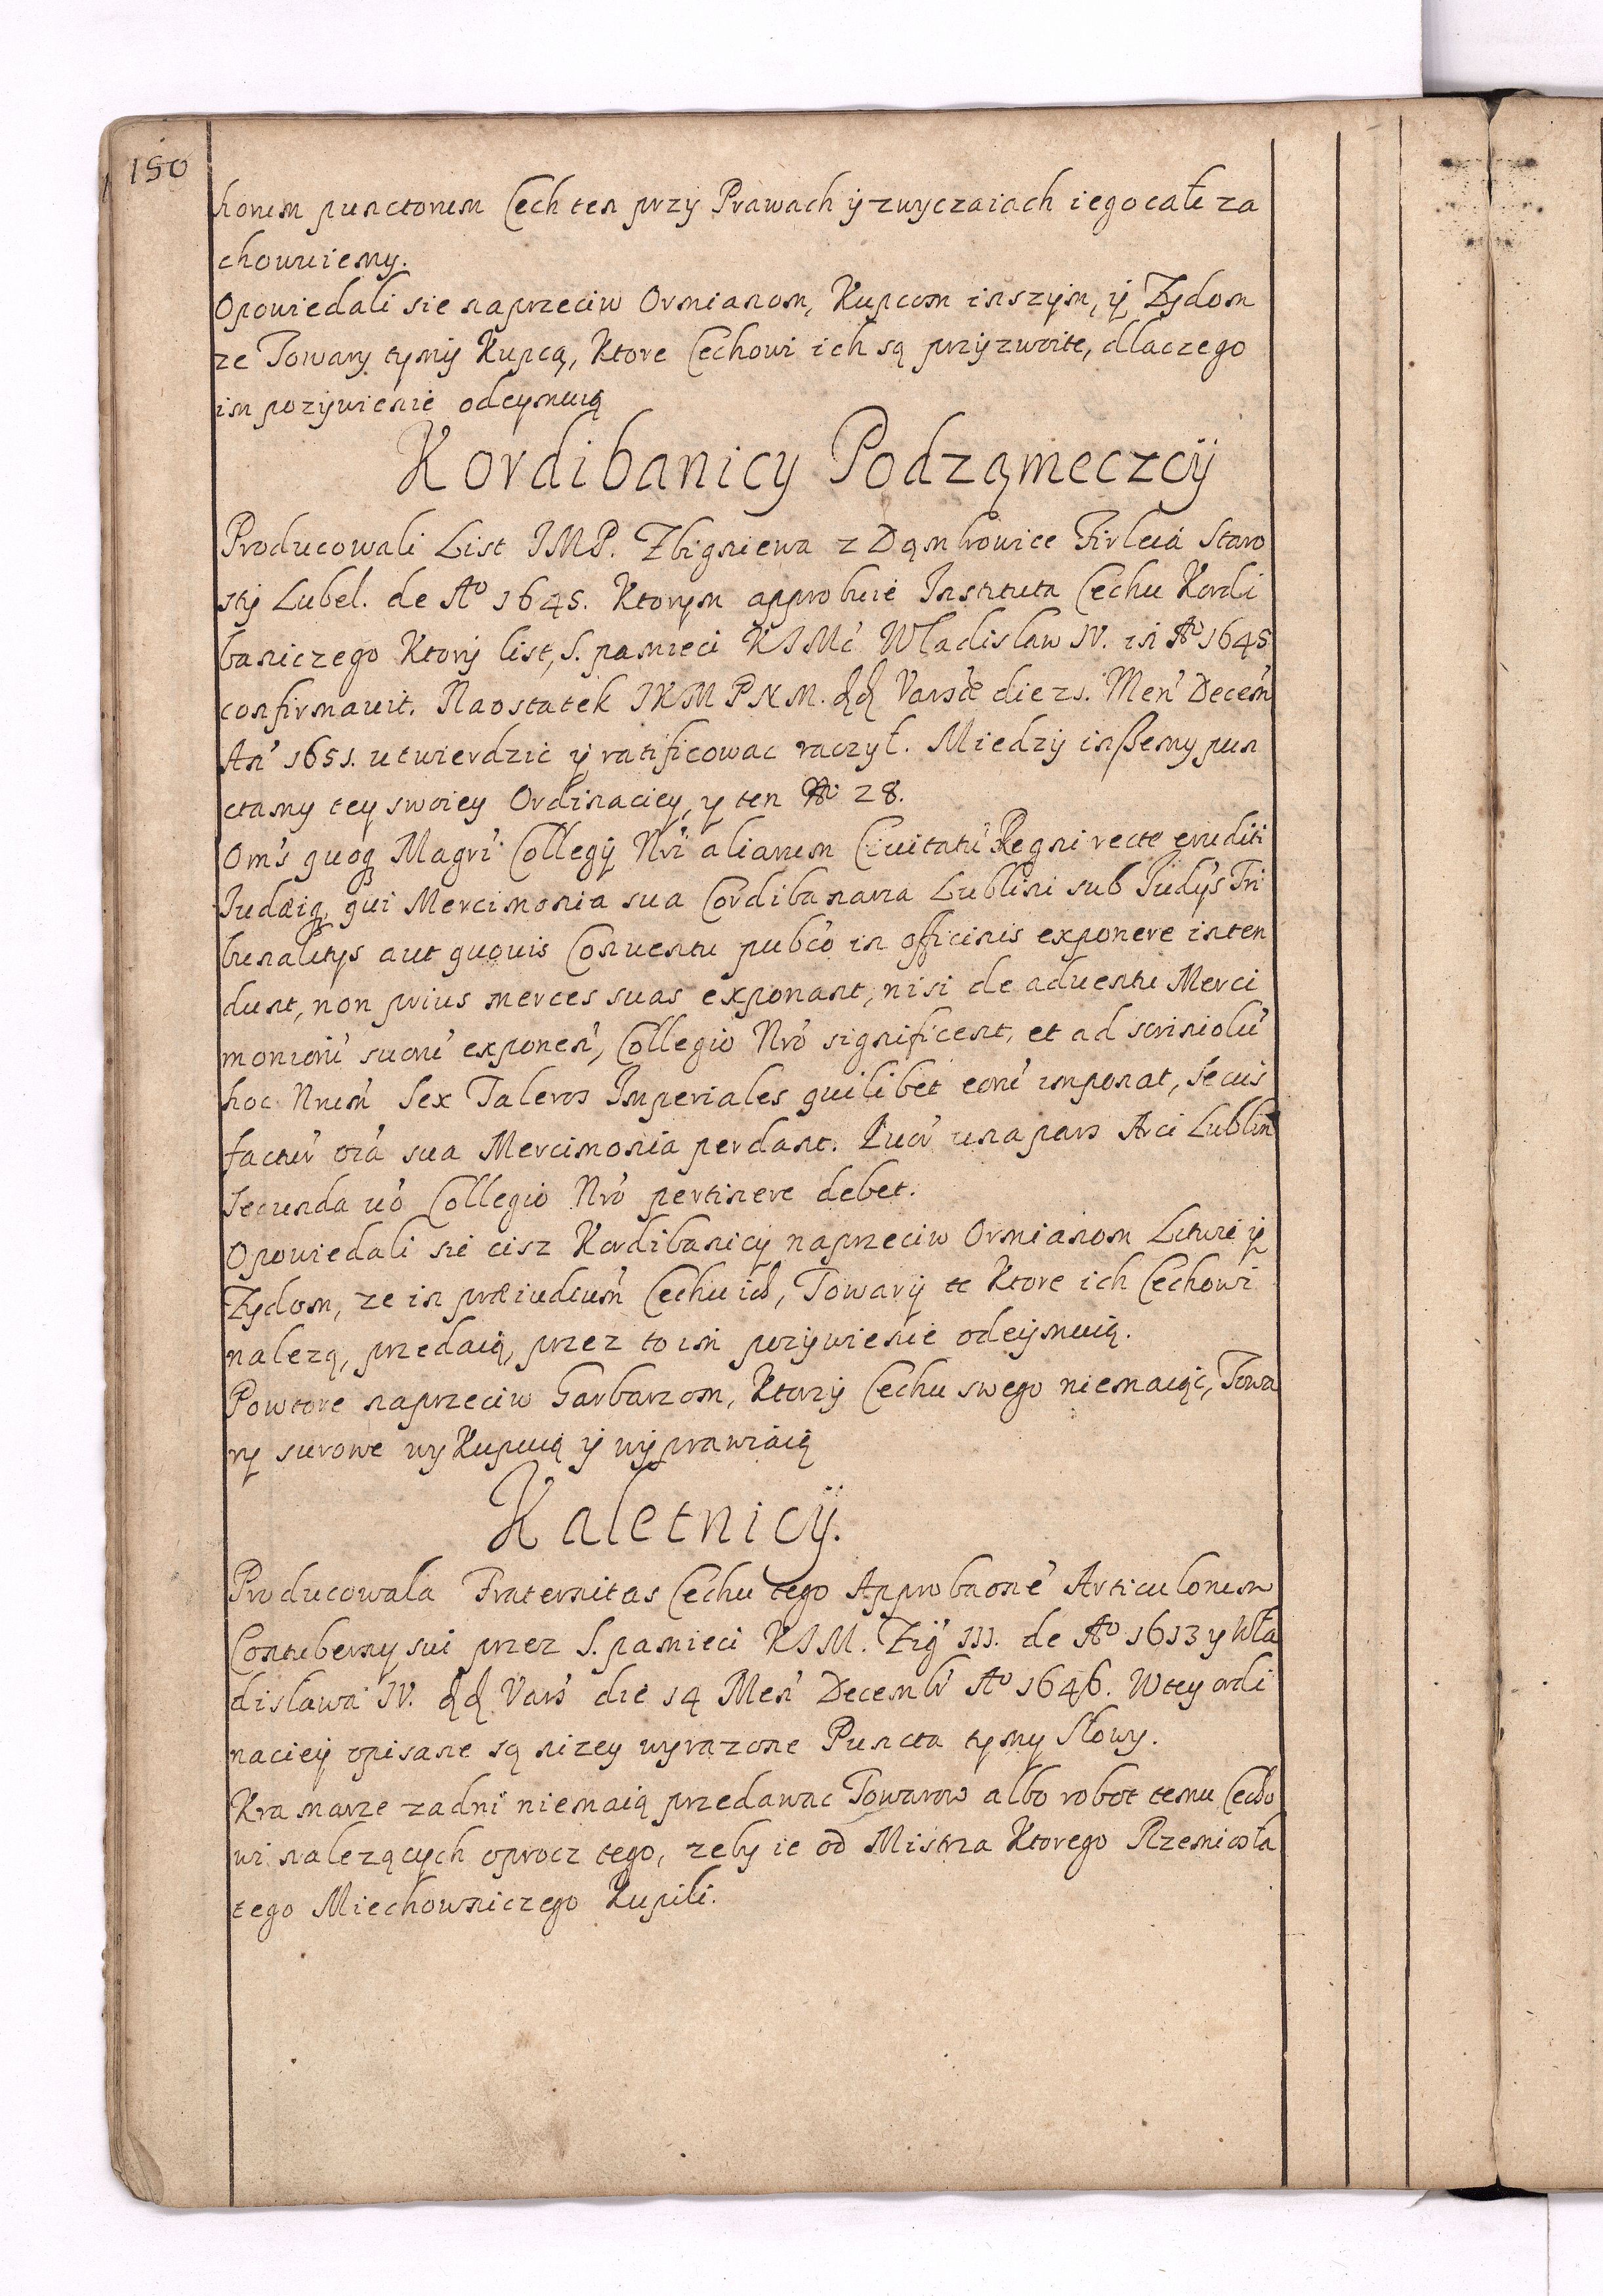 150
horum punctorum Cech ten przy Prawach ÿ zwyczaiach iego całe za
chowuiemy.
Opowiedali sie naprzeciw Ormianom, Kupcom inszÿm, ÿ Zydom
ze Towary tymÿ Kupcą, Ktore Cechowi ich są przÿzwoite, dlaczego
im pozÿwienie odeymuią
Kordibanicy Podząmeczcÿ
Producowali List JMP. Zbigniewa z Dąmbrowice Firleia Staro
stÿ Lubel. de Aº 1645. Ktorÿm approbuie Instituta Cechu Kordi
baniczego Ktorÿ list, S. pamieci KJMć Wladislaw IV. in Aº 1645
confirmauit. Naostatek JKM PNM. dd Varsae die 21. Men' Decem'
An' 1651. utwierdzic ÿ ratificowac raczył. Miedzÿ inßemy pun
ctamy tey swoiey Ordinaciey, y ten Nº 28.
Om's quoq Magri' Collegÿ Nri' aliarum Ciuitatu' Regni recte eruditi
Iudæiq, qui Mercimonia sua Cordibanaria Lublini sub Iudÿs Tri
bunalitÿs aut quouis Conuentu pub'co in officinis exponere inten
dunt, non prius merces suas exponant, nisi de aduentu Merci
monioru' suoru' exponen', Collegio Nro' significent, et ad scriniolu'
hoc Nrum' Sex Taleros Imperiales quilibet eoru' imponat, secus
factur' oia' sua Mercimonia perdant. Quor' una pars Arci Lublin'
Secunda uo' Collegio Nro' pertinere debet.
Opowiedali sie cisz Kordibanicy naprzeciw Ormianom Litwie ÿ
Zydom, ze in præiudicium' Cechu ich, Towarÿ te Ktore ich Cechowi
nalezą, przedaią, przez to im pozÿwienie odeijmuią.
Powtore naprzeciw Garbarzom, Ktorzÿ Cechu swego niemaiąc, Towa
ry surowe wyKupuią ÿ wÿprawiaią
Kaletnicÿ.
Producowala Fraternitas Cechu tego Approbaone' Articulorum
Contuberny sui przez S. pamieci KJM. Zig' III. de Aº 1613 y Wła
dislawa IV. dd Vars' die 14 Men' Decembr' Aº 1646. W tey ordi
naciey opisane są nizey wyrazone Puncta tymy Słowy.
Kramarze zadni niemaią przedawac Towarow albo robot temu Cecho
wi nalezących oprocz tego, zeby ie od Mistrza Ktorego Rzemiosła
tego Miechowniczego Kupili.